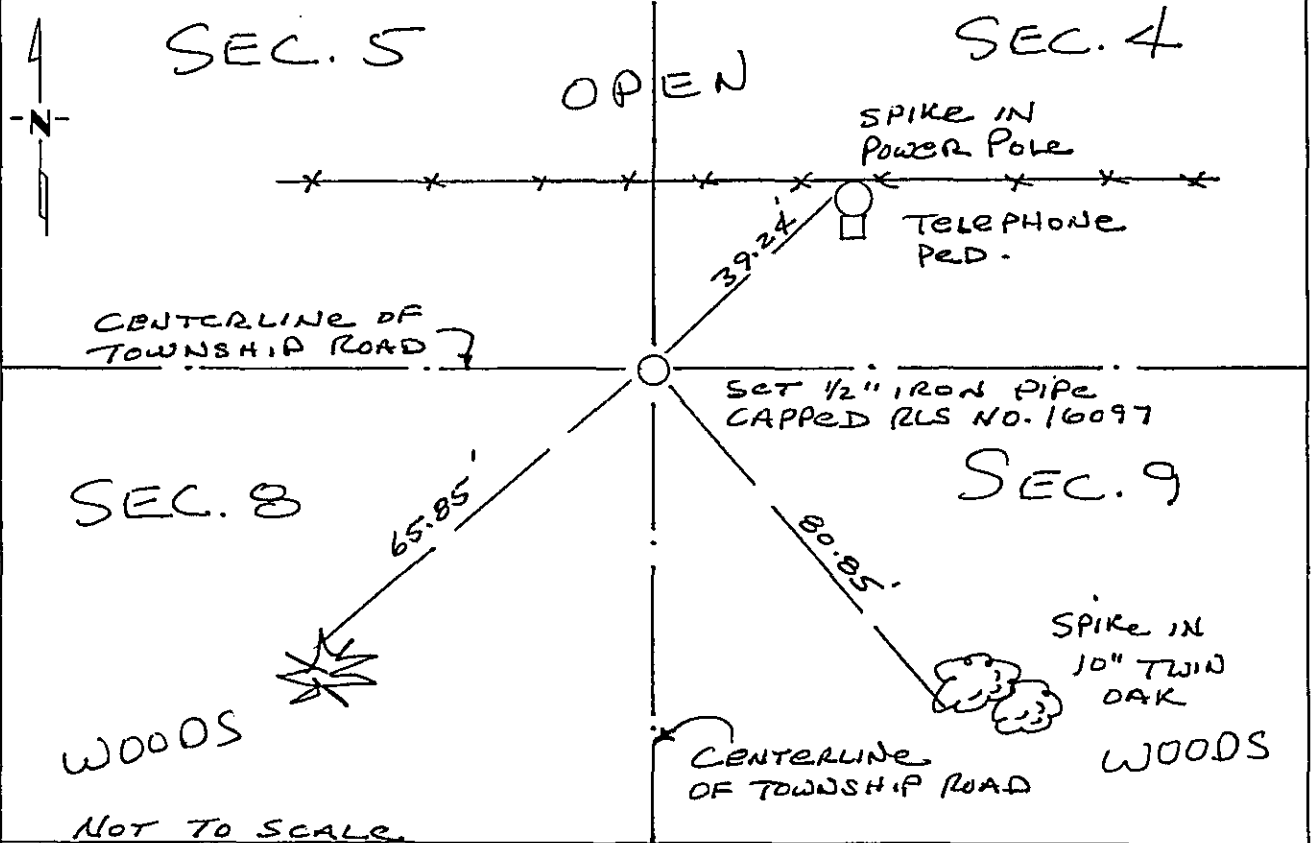 SEC. 5
SEC. 4
OPEN
N
SPIKE IN
POWER POLE
39.24'
TELEPHONE
PED.
CENTERLINE OF
TOWNSHIP ROAD
SET 1/2" IRON PIPE
CAPPED RLS NO. 16097
SEC. 8
SEC. 9
65.85'
80.85'
SPIKE IN
10" TWIN
OAK
WOODS
CENTERLINE
OF TOWNSHIP ROAD
WOODS
NOT TO SCALE